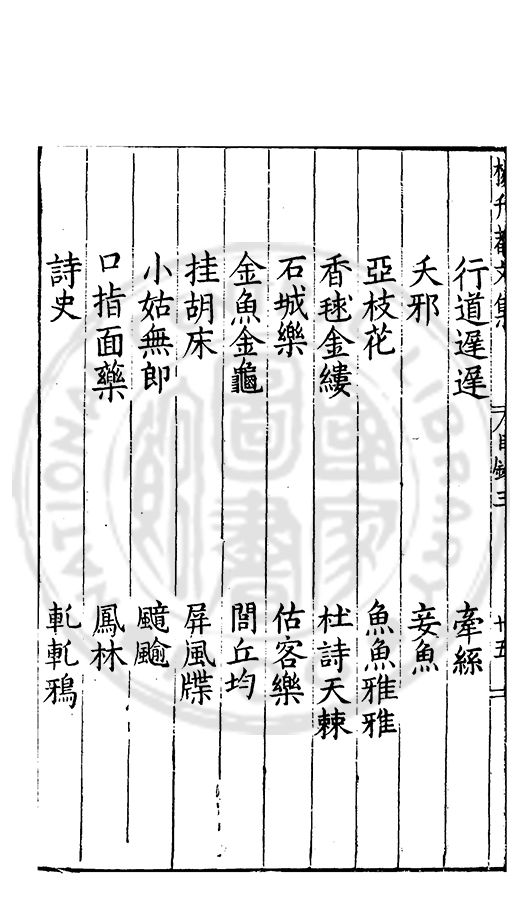 楊升菴文集 目錄三 廿五
行道遲遲 牽繇
夭邪 妾魚
亞枝花 魚魚雅雅
香毬金縷 杜詩天棘
石城樂 估客樂
金魚金龜 閭丘均
挂胡床 屏風牒
小姑無郎
口指面藥 鳳林
詩史 軋軋鴉